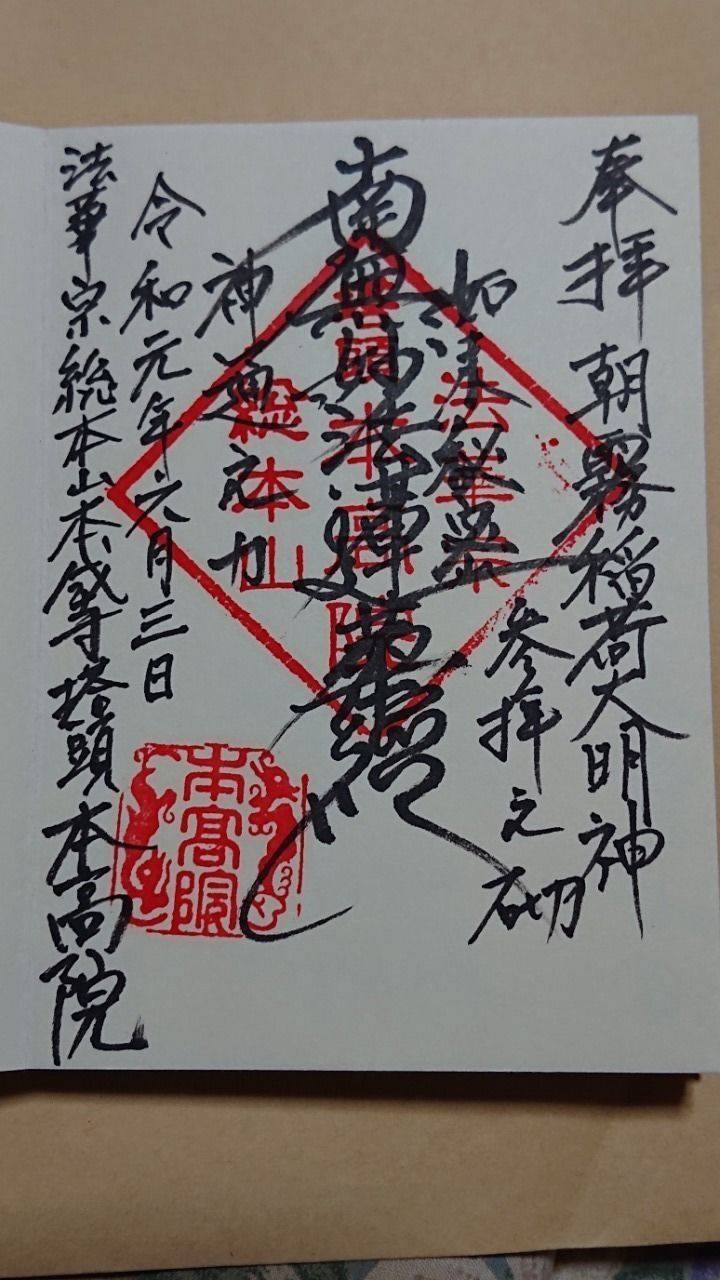 奉拝 朝霧稲荷大明神
参拝之砌
如来秘密
南無妙法蓮華経
神通之力
令和元年六月三日
法華宗総本山本能寺塔頭 本高院
法華宗
本高院
総本山
本高院